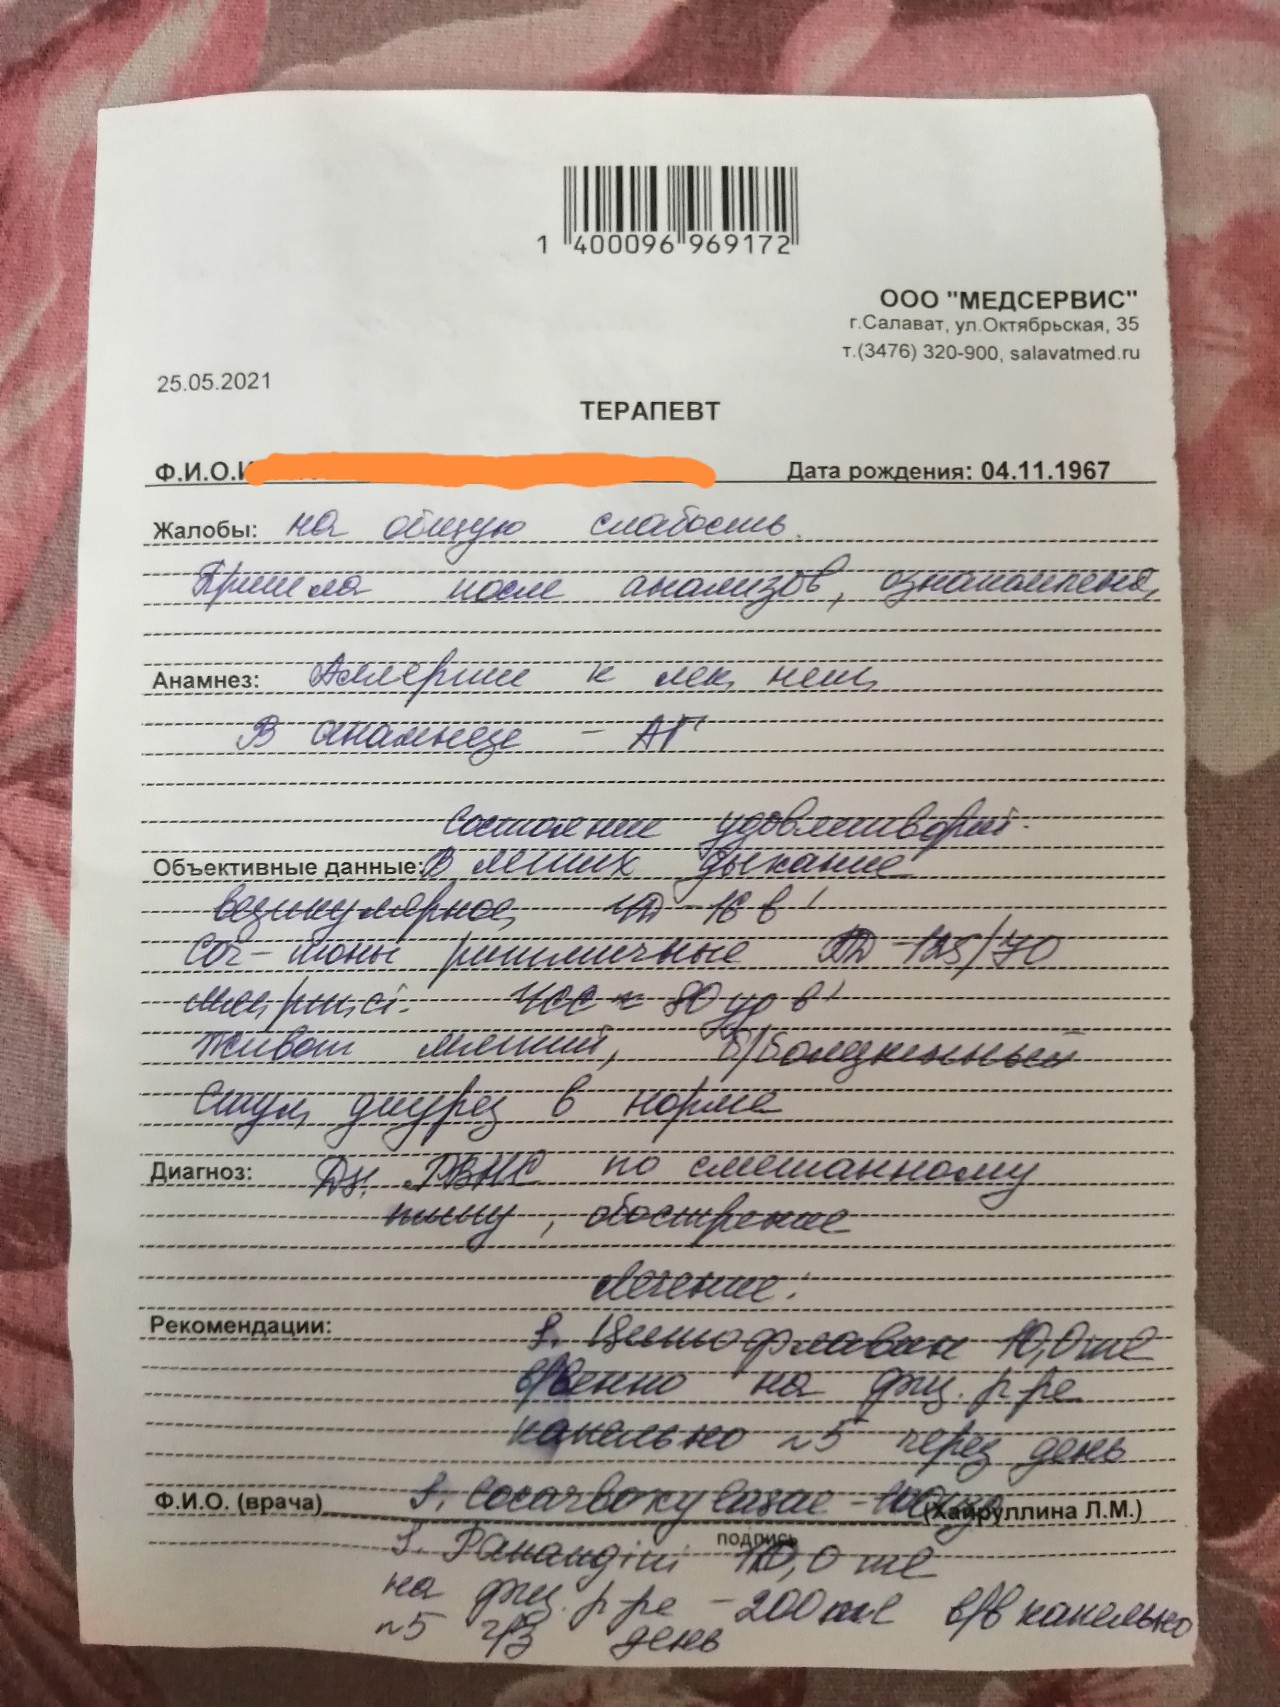 1 400096 969172
ООО "МЕДСЕРВИС"
г.Салават, ул.Октябрьская, 35
т.(3476) 320-900, salavatmed.ru
25.05.2021
ТЕРАПЕВТ
Ф.И.О. Дата рождения: 04.11.1967
Жалобы: на общую слабость.
Пришла после анализов, ознакомлена,
Анамнез: Аллергии к лек. нет,
В анамнезе - АГ
Состояние удовлетворит.
Объективные данные: В легких дыхание
везикулярное, ЧД -16 в '
Сог-тоны ритмичные АД -125/70
ЧСС ~ 80 уд в '
Живот мягкий, б/болезненный
Стул, диурез в норме
Диагноз: Дз. РВНС по смешанному
типу, обострение
Лечение:
Рекомендации: S. Цитофлавин 10,0 ml
в/венно на физ. р-ре
капельно N5 через день
Ф.И.О. (врача) S. Cocarboxylasae - 100 (Хайруллина Л.М.)
подпись
S. Панангin 10,0 ml
на физ. р-ре - 200 ml в/в капельно
N5 ч/з день